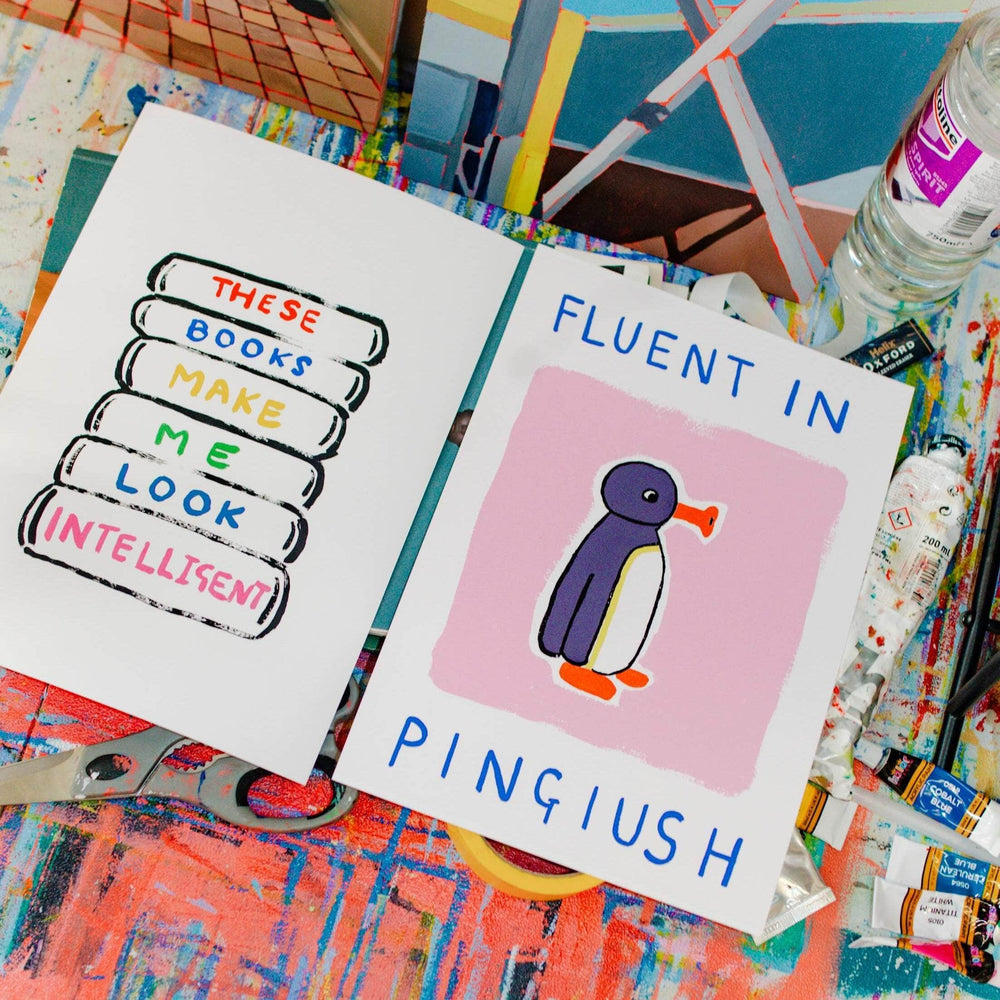 THESE
BOOKS
MAKE
ME
LOOK
INTELLIGENT
FLUENT IN
PINGIUSH
SPIRIT
750ml
Helix
OXFORD
200 ml
COBALT
BLUE
CERULEAN
BLUE
0564
0105
TITANIUM
WHITE